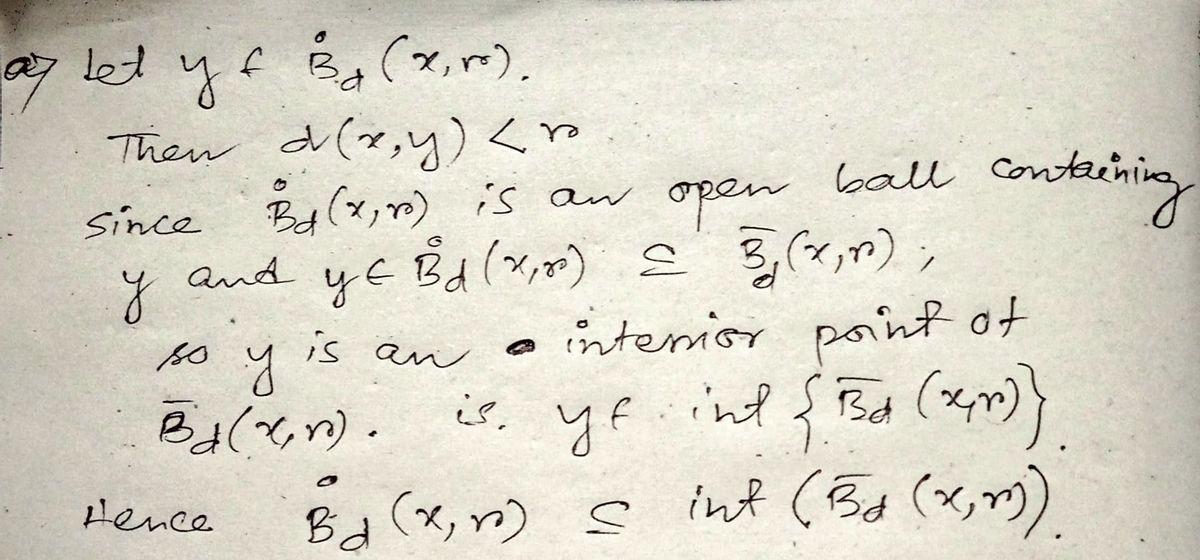 a) Let y ∈ B̊_d (x, r).
Then d(x, y) < r
since B̊_d (x, r) is an open ball containing
y and y ∈ B̊_d (x, r) ⊆ B̄_d (x, r),
so y is an interior point of
B̄_d (x, r). ie. y ∈ int {B̄_d (x, r)}.
Hence B̊_d (x, r) ⊆ int (B̄_d (x, r)).